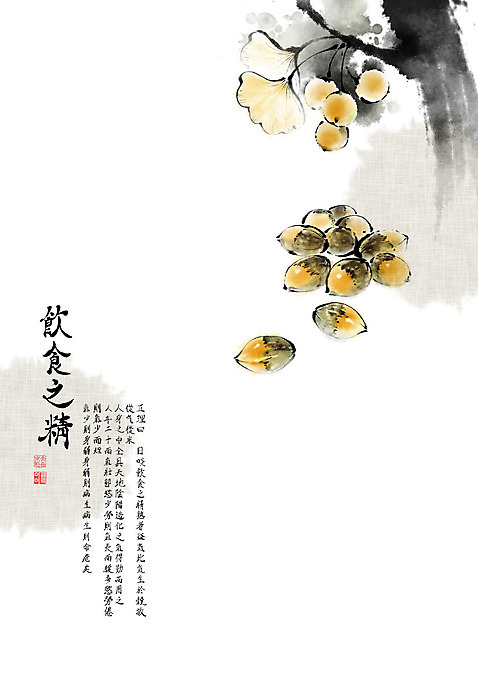 飲食之精
正理曰 日啖飲食之精熟者益氣此氣生於穀故
從气從米
人身之中全具天地陰陽造化之氣得勤而用之
人年二十而氣壯節慾少勞則氣長而緩多慾勞倦
則氣少而短
氣少則身弱身弱則病生病生則命危矣